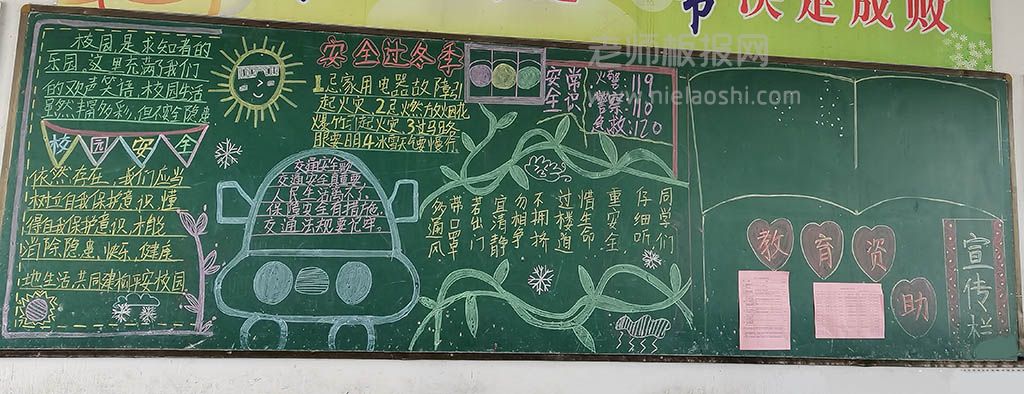 节决定成败
老师板报网
www.nielaoshi.com
校园是求知者的
乐园,这里充满了我们
的欢声笑语,校园生活
虽然丰富多彩,但不安全隐患
校园安全
依然存在,我们应当
树立自我保护意识,懂
得自我保护意识,才能
消除隐患,快乐,健康
地生活,共同建构平安校园
安全过冬季
1.忌家用电器故障引
起火灾 2.忌燃放烟花
爆竹引起火灾 3.过马路
眼要明 4.冰雪天要慢行
安全常识
火警:119
警察:110
急救:120
交通安全歌
交通安全真重要
人民生活离不了
保障安全有措施
交通法规要记牢
同学们
仔细听
重安全
惜生命
过楼道
不拥挤
勿相争
宜清静
若出门
带口罩
多通风
教育资助
宣传栏